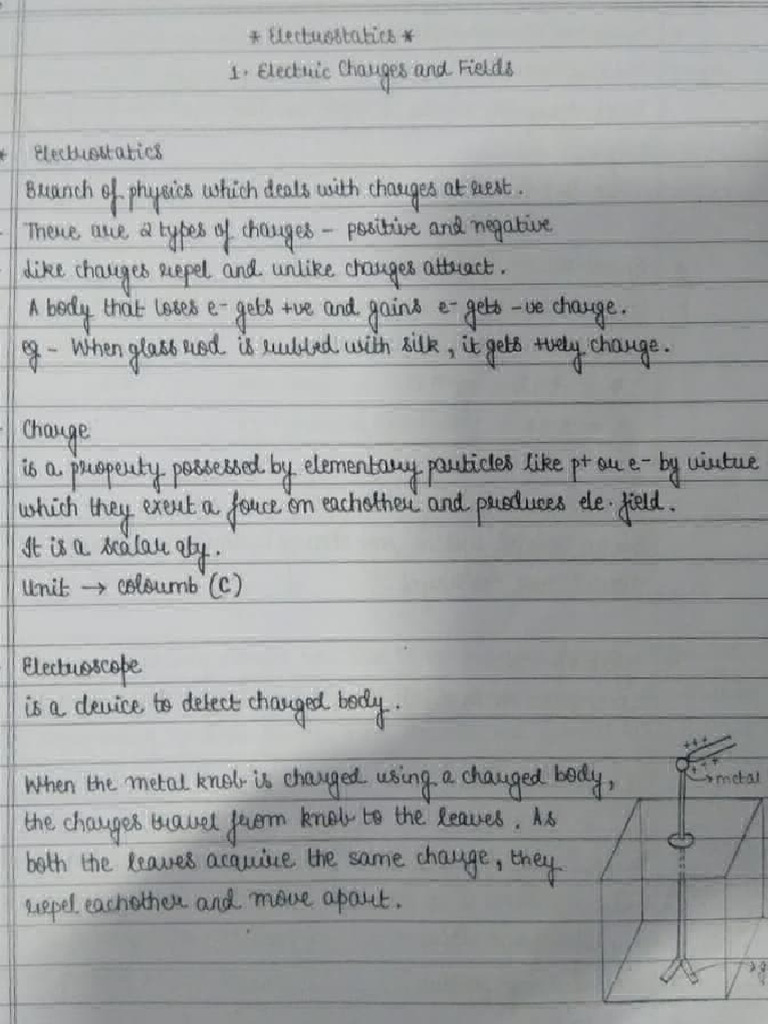 * Electrostatics *
1. Electric Charges and Fields
* Electrostatics
Branch of physics which deals with charges at rest.
- There are 2 types of charges - positive and negative
- Like charges repel and unlike charges attract.
A body that loses e- gets +ve and gains e- gets -ve charge.
eg - When glass rod is rubbed with silk, it gets +vely charge.
- Charge
is a property possessed by elementary particles like p+ or e- by virtue
which they exert a force on eachother and produces ele. field.
It is a scalar qty.
Unit → coloumb (C)
- Electroscope
is a device to detect charged body.
When the metal knob is charged using a charged body,
the charges travel from knob to the leaves. As
both the leaves acquire the same charge, they
repel eachother and move apart.
+++
+++
metal